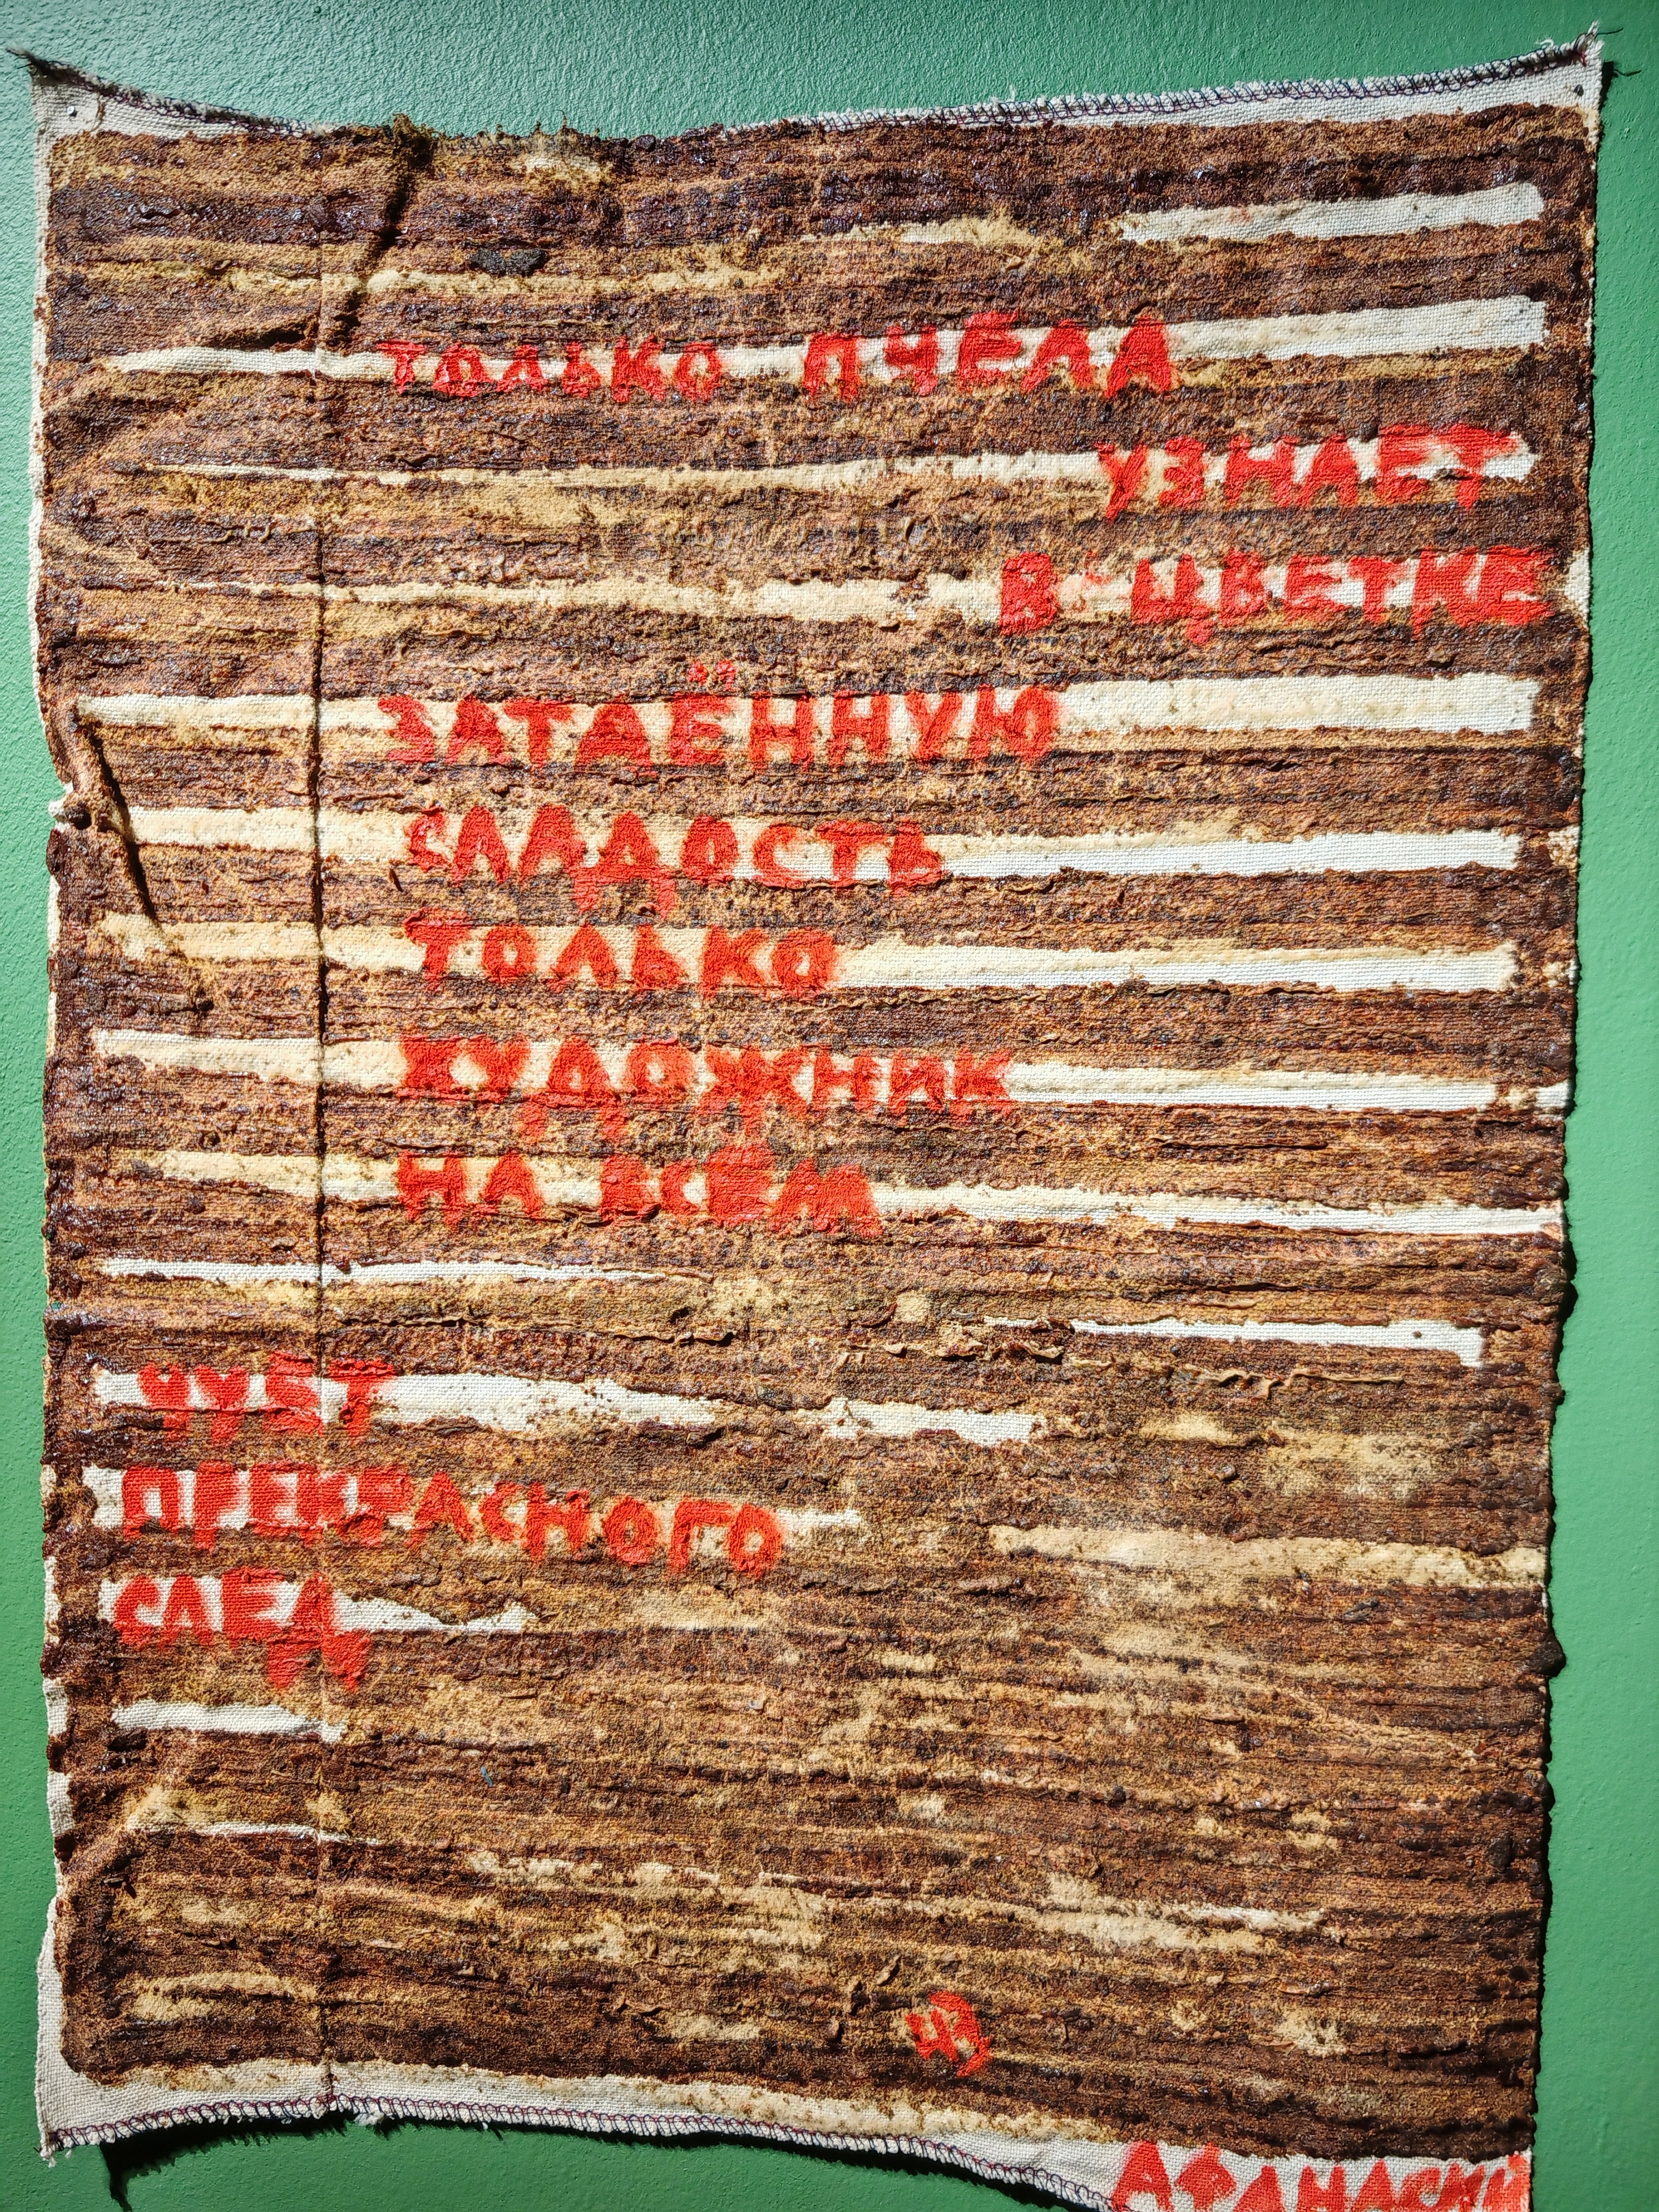 ТОЛЬКО ПЧЕЛА
УЗНАЕТ
В ЦВЕТКЕ
ЗАТАЁННУЮ
СЛАДОСТЬ
ТОЛЬКО
ХУДОЖНИК
НА ВСЁМ
ЧУЕТ
ПРЕКРАСНОГО
СЛЕД